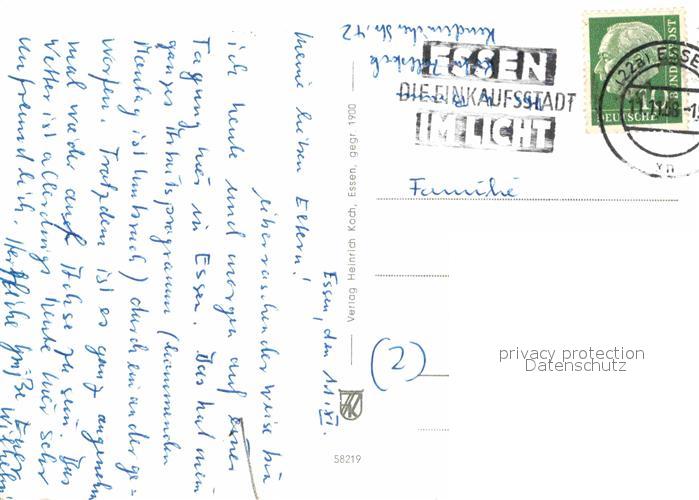 Essen, den 11.XI.
Meine lieben Eltern!
überraschender Weise bin
ich heute und morgen auf einer
Tagung hier in Essen. Das hat mein
ganzes Arbeitsprogramm (kommenden
Montag ist Umbruch) durcheinander ge=
worfen. Trotzdem ist es ganz angenehm
mal wieder auf Achse zu sein. Das
Wetter ist allerdings heute hier sehr
unfreundlich. Herzliche Grüße Euer
Wilhelm
Str. 42
ESSEN
DIE EINKAUFSSTADT
IM LICHT
(22a) ESSEN
11.11.
DEUTSCHE BUNDESPOST
Familie
(2)
Verlag Heinrich Koch, Essen, gegr. 1900
58219
privacy protection
Datenschutz